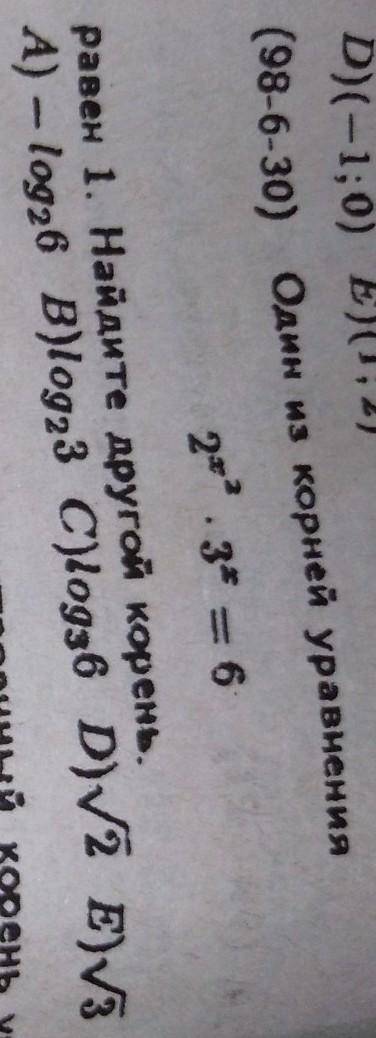 D)(−1; 0) E)(1; 2)
(98-6-30) Один из корней уравнения
2^{x^2} · 3^x = 6
равен 1. Найдите другой корень.
A) − log₂6 B)log₂3 C)log₃6 D)√2 E)√3
корень